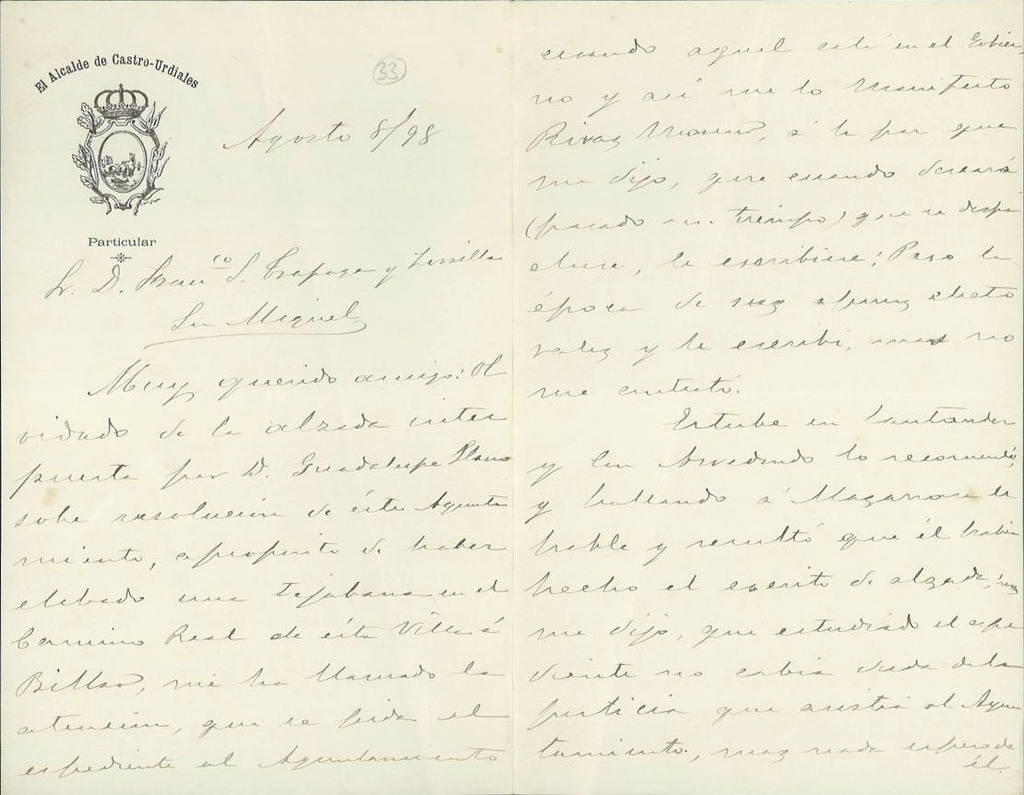 El Alcalde de Castro-Urdiales
33
Agosto 8/98
Particular
Sr. D. Franco S. Trapaga y Zorrilla
San Miguel
Muy querido amigo: Ol
vidado de la alzada inter
puesta por D. Guadalupe Llano
sobe resolución de éste Ayunta
miento, apropósito de haber
elebado una tejabana en el
Camino Real de ésta Villa á
Bilbao, me ha llamado la
atención, que se pida el
espediente al Ayuntamiento
cuando aquel está en el Gobier
no y asi me lo manifesto
Rivas Moreno, á la par que
me dijo, que cuando deseara
(pasado un tiempo) que se despa
chase, le escribiese; Paso la
época de sus apuros electo
rales y le escribi, mas no
me contestó.
Estube en Santander
y lo recomendé,
y hallando á Mazarrasa le
hable y resultó que él habia
hecho el escrito de alzada; mas
me dijo, que estudiado el espe
diente no cabia duda de la
justicia que asistia al Ayun
tamiento, mas nada espero de
él.